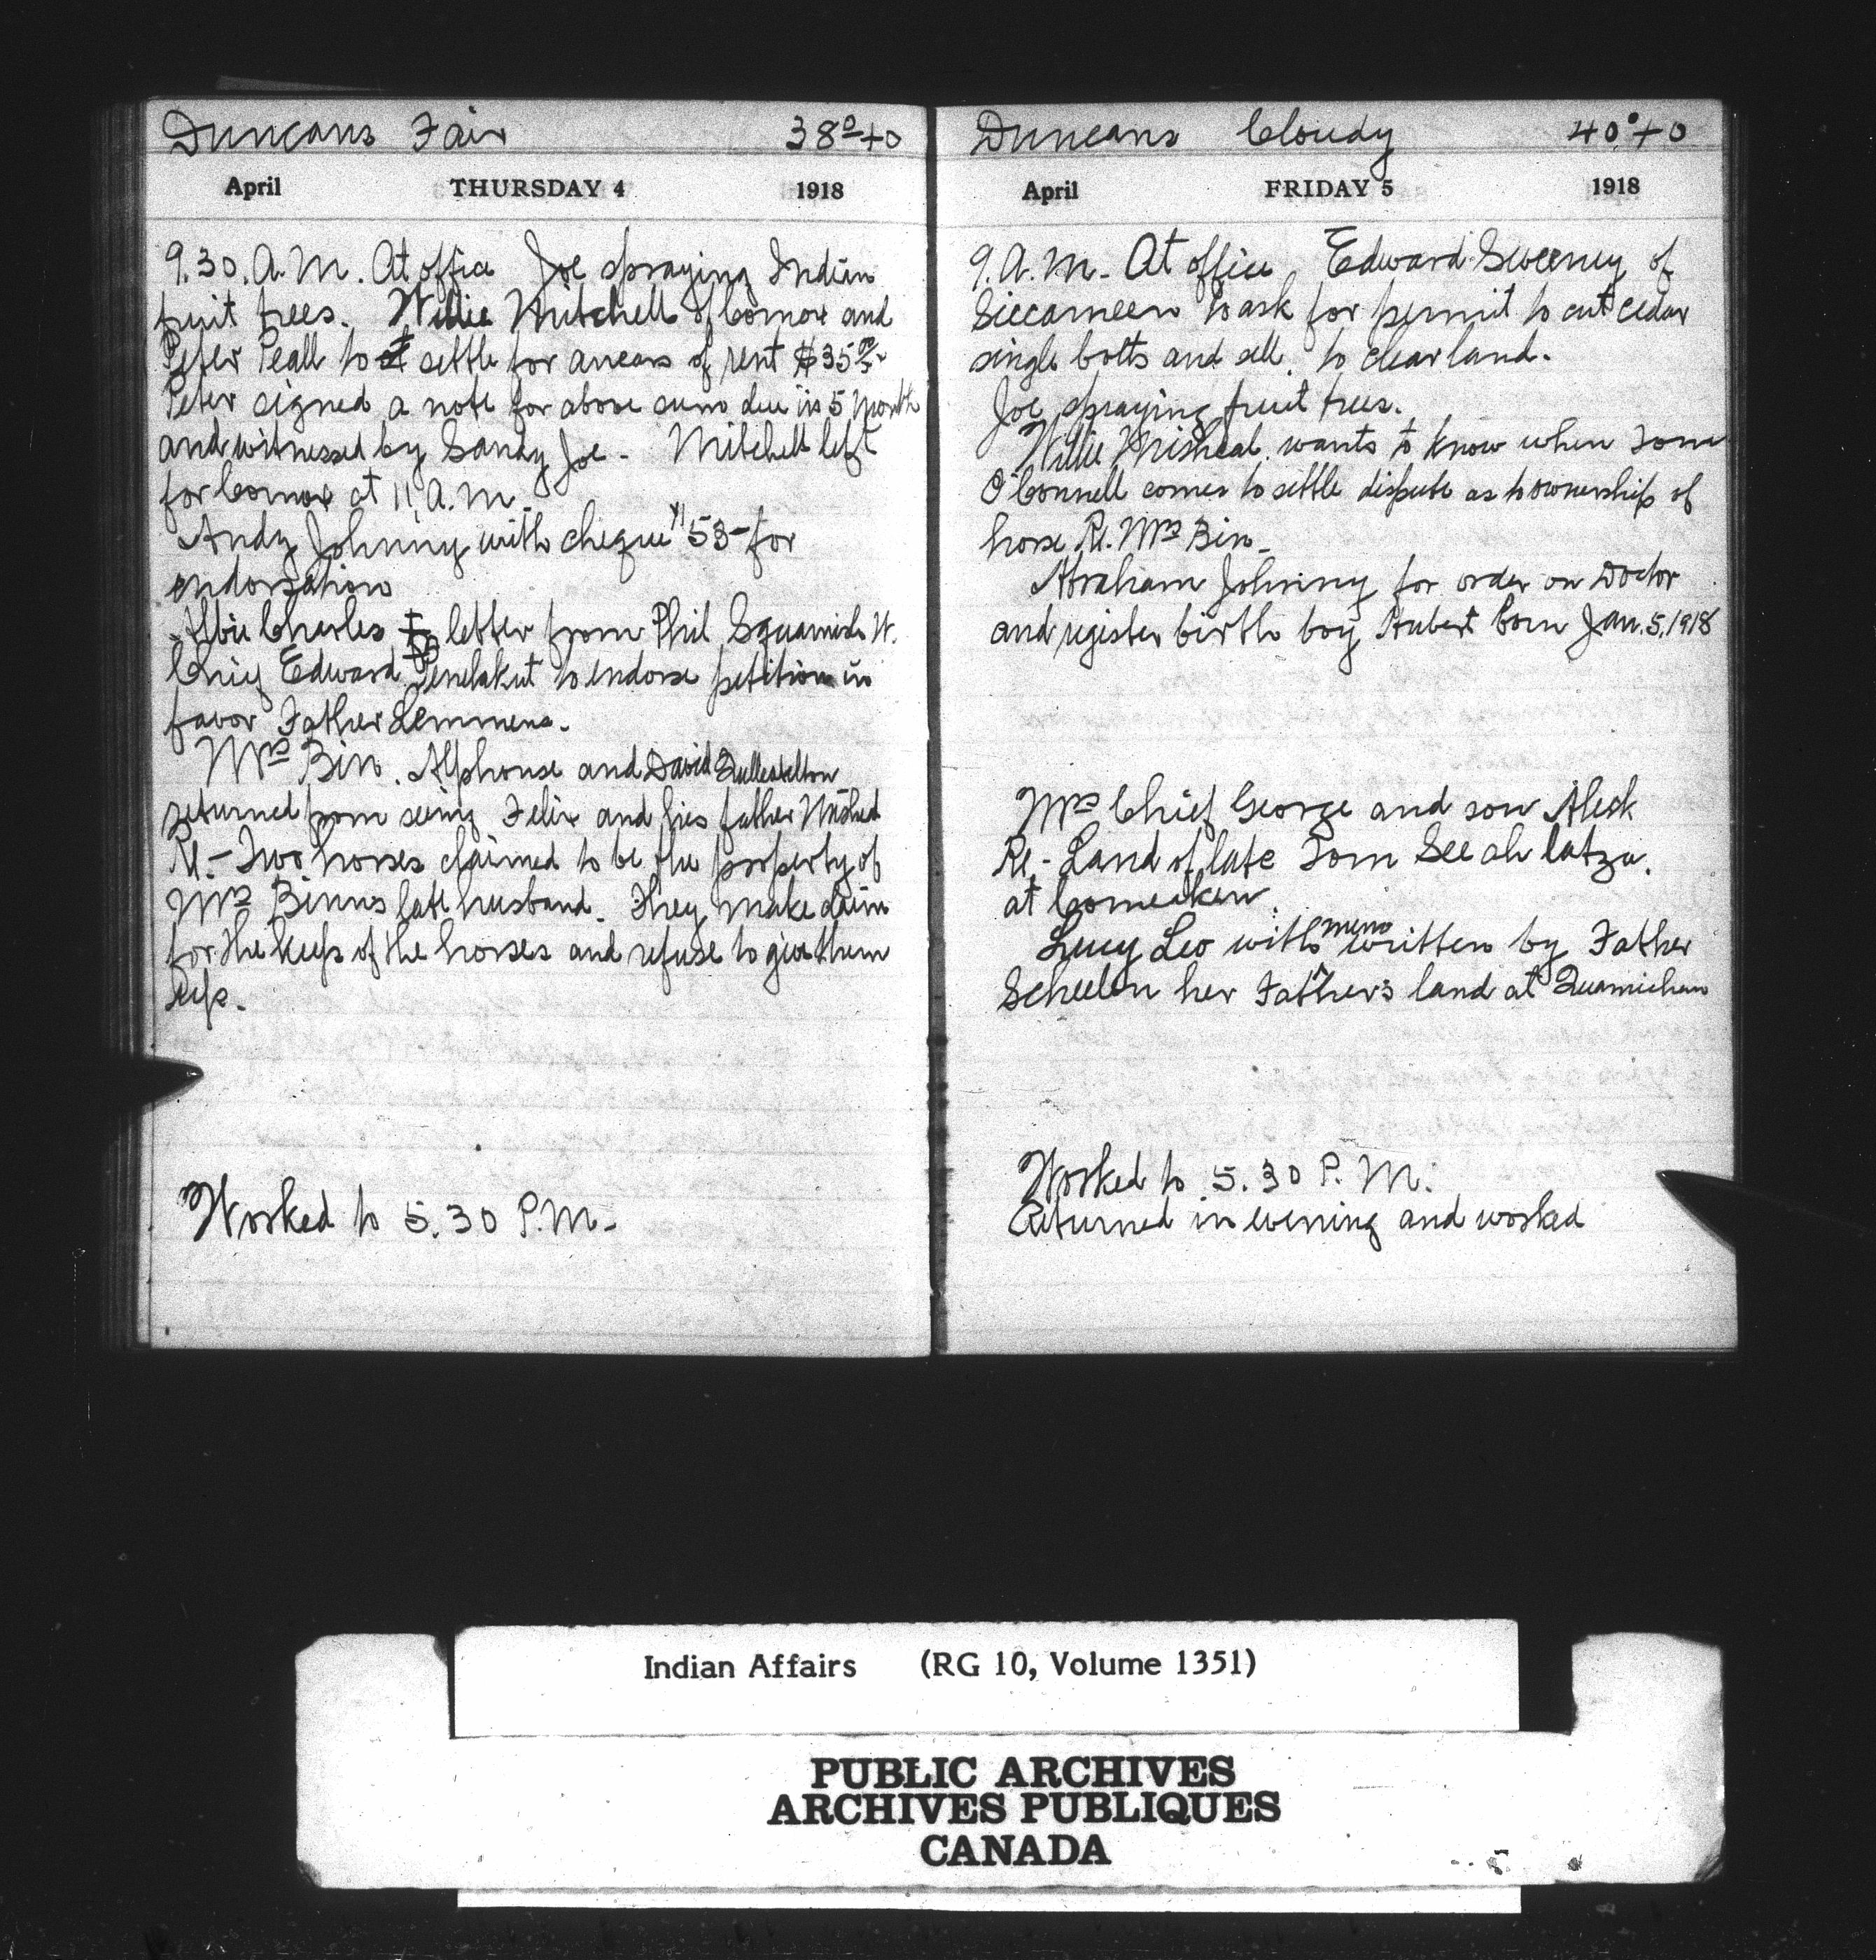 Duncans Fair 38°+0
April THURSDAY 4 1918
9.30. A.M. At office Joe spraying Indian
fruit trees. Willie Mitchell of Comox and
Peter Peall to settle for arrears of rent $35.00
Peter signed a note for above sum due in 5 Month
and witnessed by Sandy Joe - Mitchell left
for Comox at 11, A.M.
Andy Johnny with cheque 53- for
endorsation
Abie Charles letter from Phil Squamish W.
Chief Edward Penelakut to endorse petition in
favor Father Lemmens.
Mrs Bin. Alphonse and David
returned from seeing Felix and his father
Re - Two horses claimed to be the property of
Mrs Binns late husband. They make claim
for the keep of the horses and refuse to give them
up.
Worked to 5.30 P.M.
Duncans Cloudy 40°+0
April FRIDAY 5 1918
9. A.M. - At office Edward Sweeney of
Siccameen to ask for permit to cut cedar
single bolts and sell. to clear land.
Joe spraying fruit trees.
Willie Misheal wants to know when Tom
O'Connell comes to settle dispute as to ownership of
horse Re. Mrs Bin -
Abraham Johnny for order on Doctor
and register birth boy Hubert born Jan. 5, 1918
Mrs Chief George and son Aleck
Re - Land of late Tom See ah latza.
at Comeaken.
Lucy Leo with memo written by Father
Scheelen her Father's land at Quamichan
Worked to 5.30 P.M.
Returned in evening and worked
Indian Affairs (RG 10, Volume 1351)
PUBLIC ARCHIVES
ARCHIVES PUBLIQUES
CANADA